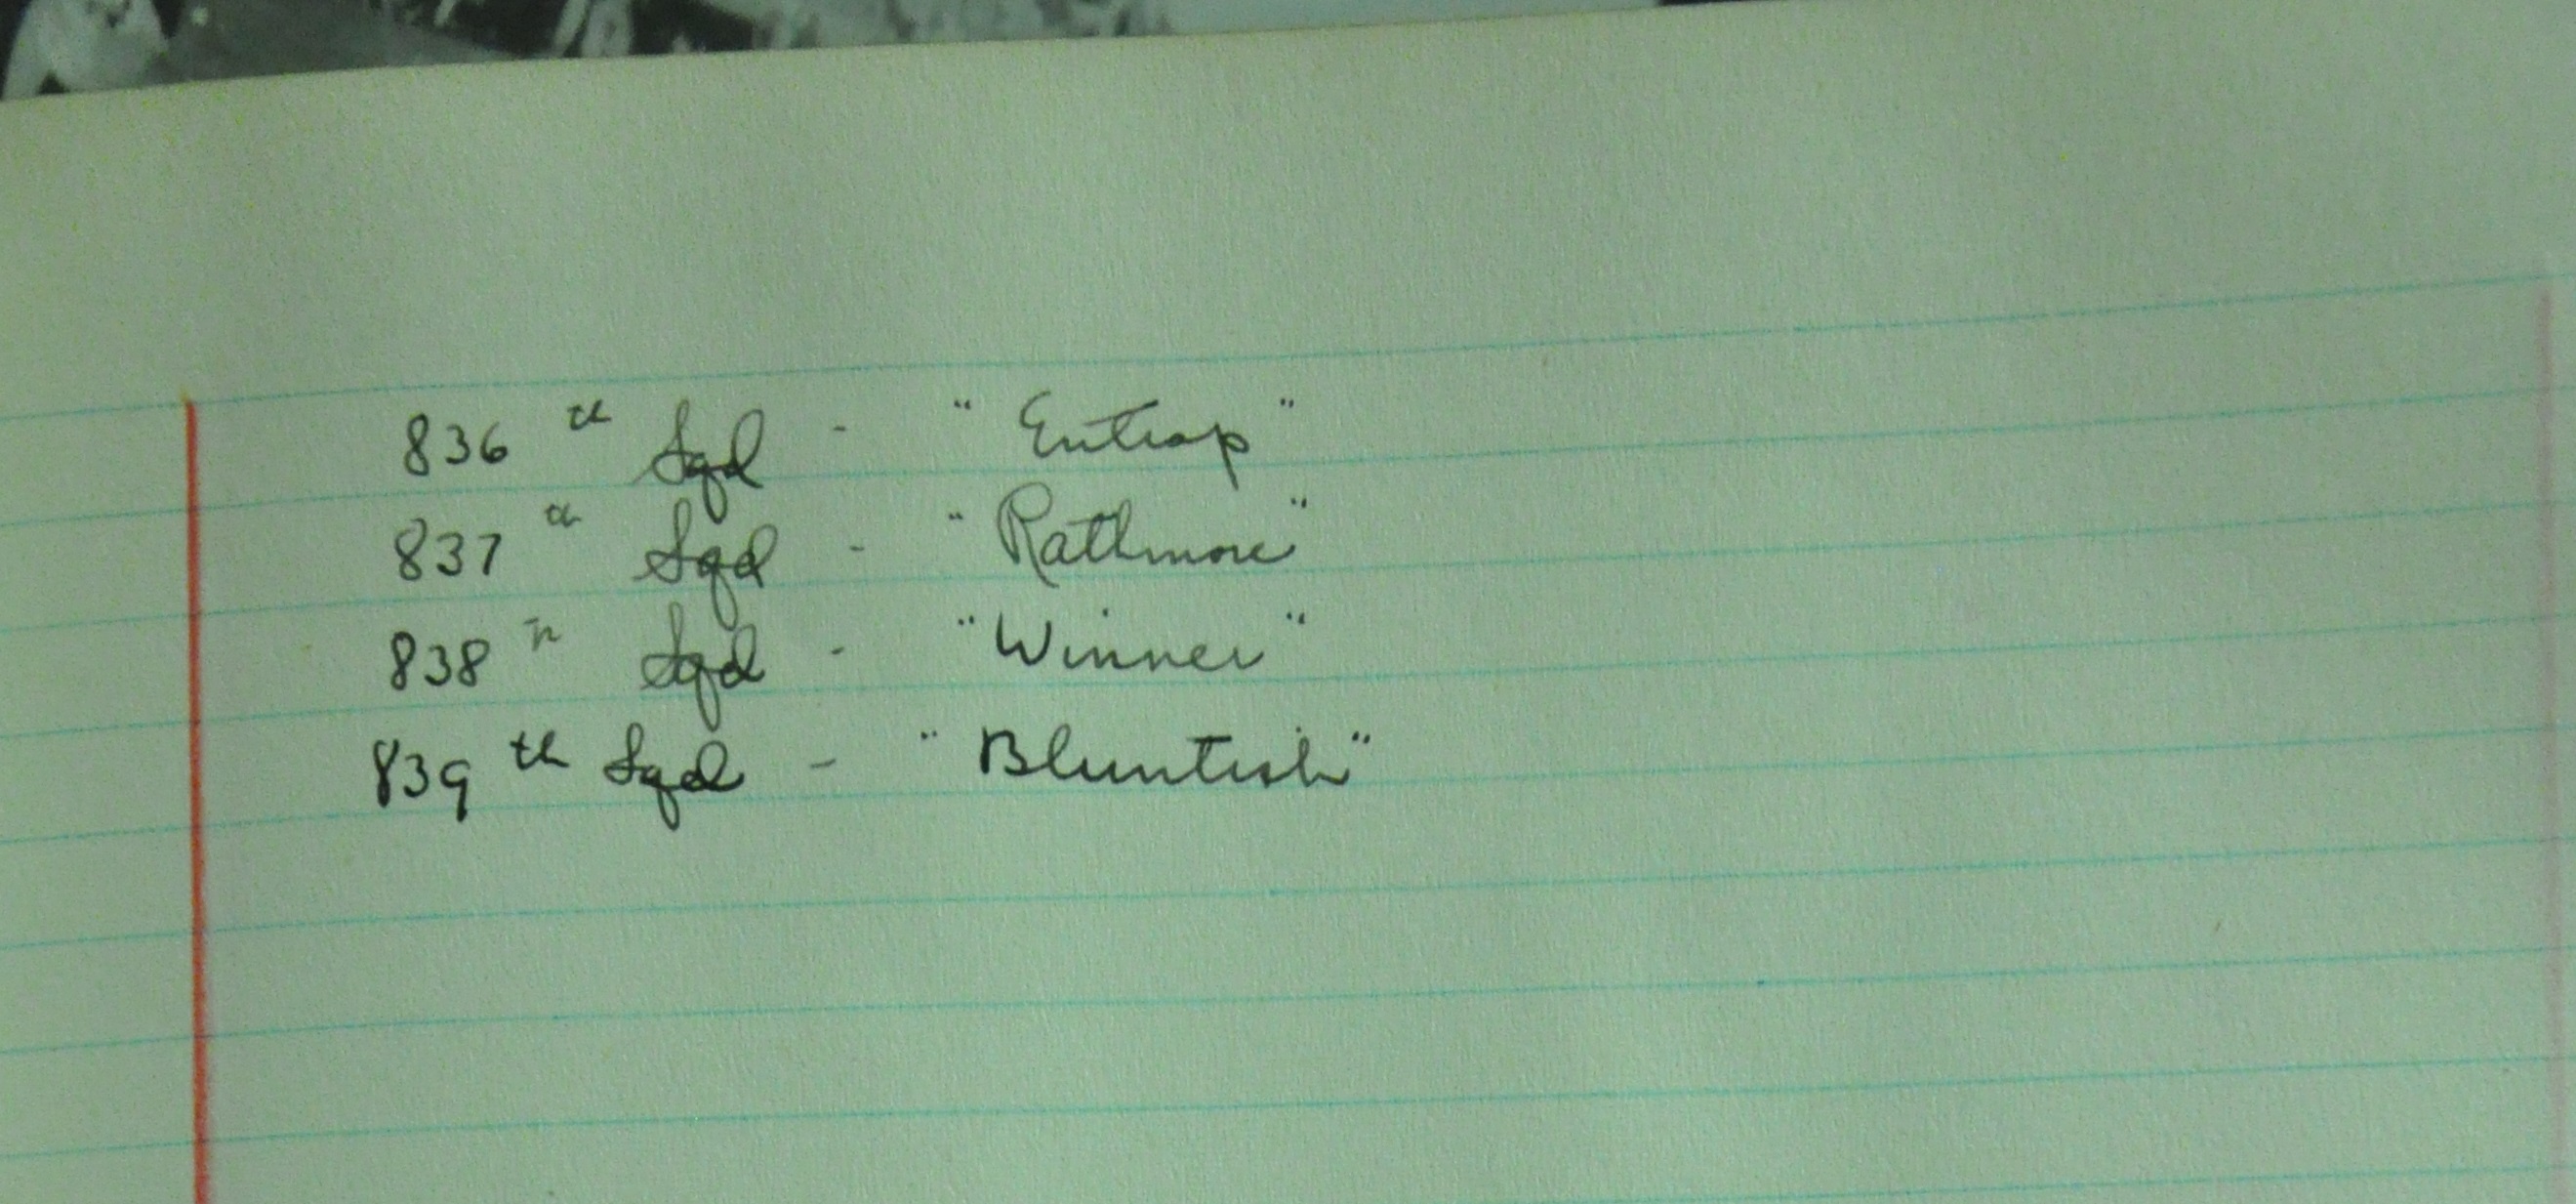 836th Sqd - "Entrap"
837th Sqd - "Rathmore"
838th Sqd - "Winner"
839th Sqd - "Bluntish"